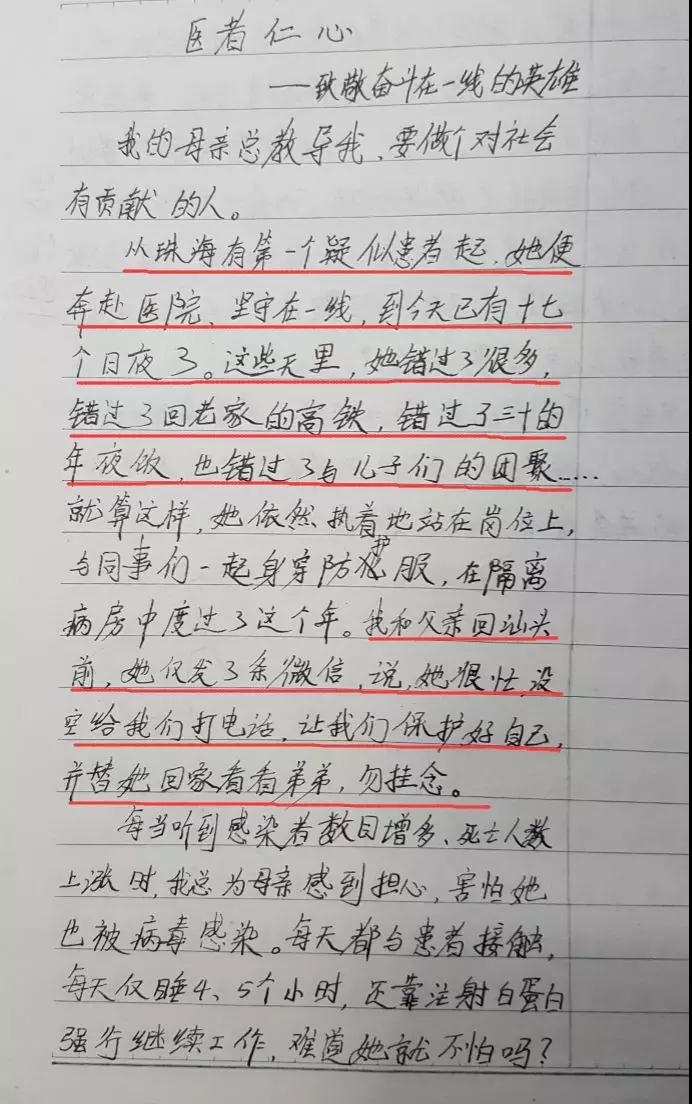 医者仁心
——致敬奋斗在一线的英雄
我的母亲总教导我、要做个对社会
有贡献的人。
从珠海有第一个疑似患者起，她便
奔赴医院、坚守在一线，到今天已有十七
个日夜了。这些天里，她错过了很多，
错过了回老家的高铁，错过了三十的
年夜饭，也错过了与儿子们的团聚……
就算这样，她依然执着地站在岗位上，
与同事们一起身穿防护服，在隔离
病房中度过了这个年。我和父亲回汕头
前，她仅发了条微信，说，她很忙，没
空给我们打电话，让我们保护好自己，
并替她回家看看弟弟，勿挂念。
每当听到感染者数目增多、死亡人数
上涨时，我总为母亲感到担心，害怕她
也被病毒感染。每天都与患者接触，
每天仅睡4、5个小时，还靠注射白蛋白
强行继续工作，难道她就不怕吗？